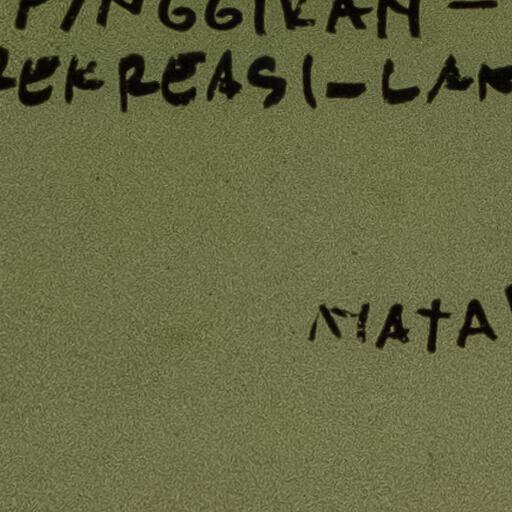 PINGGIRAN –
REKREASI–LAN
MATA